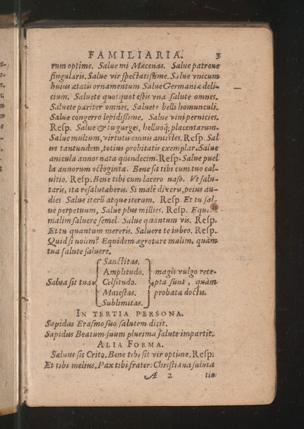 FAMILIARIA. 3
rum optime. Salue mi Mæcenas. Salue patrone
singularis. Salue vir spectatissime. Salue vnicum
huius ætatis ornamentum Salue Germaniæ deli-
cium. Saluete quotquot estis vna salute omnes.
Saluete pariter omnes. Saluete belli homunculi.
Salue congerro lepidissime. Salue vini pernicies.
Resp. Salue & tu gurges, helluoq; placentarum.
Salue multum, virtutum omnium antistes. Resp. Sal
ue tantundem, totius probitatis exemplar. Salue
anicula annor. nata quindecim. Resp. Salue puel
la annorum octoginta. Bene sit tibi cum tuo cal-
uitio. Resp. Bene tibi cum lacero naso. Vt salu-
taris, ita resalutaberis. Si malè dixeris, peius au-
dies Salue iterū atque iterum. Resp Et tu sal-
ue perpetuum, Salue plus millies. Resp. Equidē
malim saluere semel. Salue quantum vis. Resp.
Et tu quantum mereris. Saluere te iubeo. Resp.
Quid si nolim? Equidem ægrotare malim, quàm
tua salute saluere.
Sanctitas.
Amplitudo. magis vulgo rece-
Salua sit tua Celsitudo. pta sunt, quàm
Maiestas. probata doctis.
Sublimitas.
IN TERTIA PERSONA.
Sapidus Erasmo suo salutem dicit.
Sapidus Beatum suum plurima salute impartit.
ALIA FORMA.
Saluus sis Crito. Bene tibi sit vir optime. Resp.
Et tibi melius. Pax tibi frater: Christiana salute
A 2